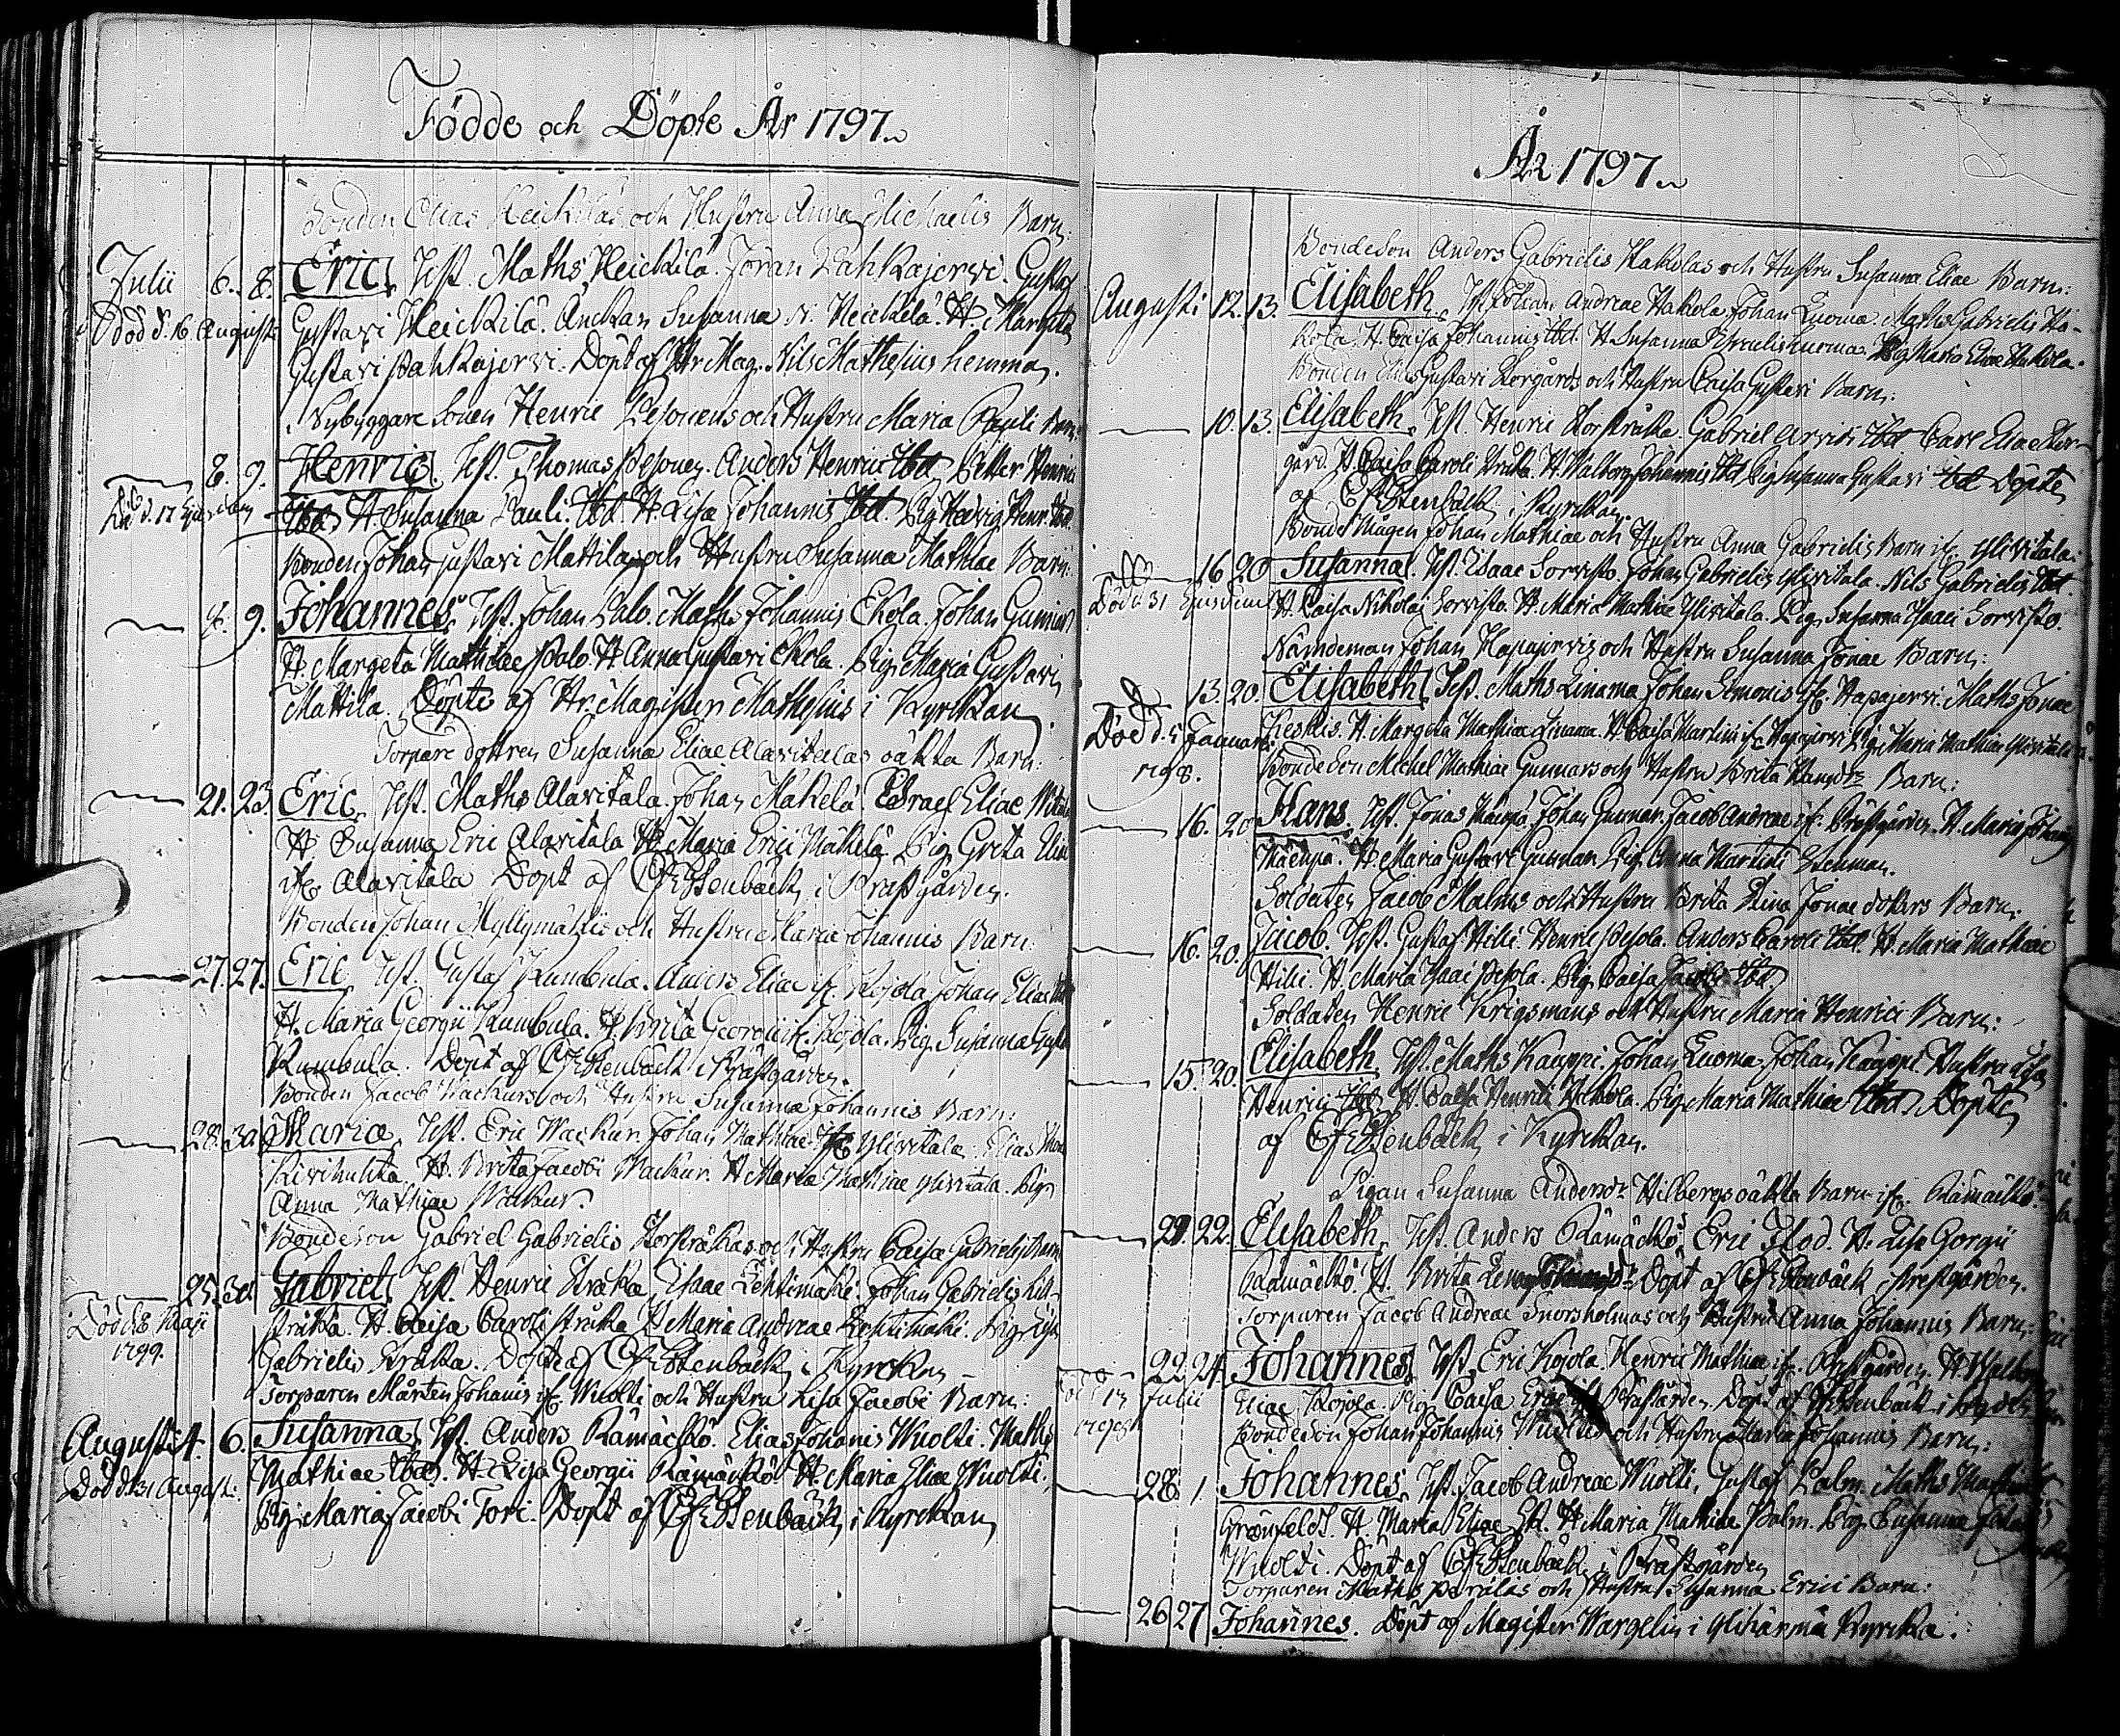 Födde och Döpte År 1797.
Bonden Elias Heickiläs och Hustru Anna Michaelis Barn:
Julii 6. 8. Eric. Test. Maths Heickilä. Jöran Pahkajerwi. Gustaf
död d. 16 Augusti Gustavi Heickilä. Anckan Susanna N. Heickilä. H. Margeta
Gustavi Pahkajerwi. Döpt af Hr Mag. Nils Mathesius hemma.
Nybyggare Sonen Henric Pesonens och Hustru Maria Pauli Barn:
8. 9. Henric. Test. Thomas Pesonen. Anders Henrici Ibd. Petter Henrici
d. 17 Ejusdem Ibd. H. Susanna Pauli. Ibd. H. Lisa Johannis Ibd. Pig. Hedvig Henr. Ibd.
Bonden Johan Gustavi Mattilas och Hustru Susanna Mathiae Barn:
8. 9. Johannes. Test. Johan Palo. Maths Johannis Ekola. Johan Gunnar
H. Margeta Mathiae Palo. H. Anna Gustavi Ekola. Pig. Maria Gustavi
Mattila. Döpte af Hr. Magister Mathesius i Kyrckan.
Torpare dottren Susanna Eliae Alavitalas oäkta Barn:
21. 23. Eric. Test. Maths Alavitala. Johan Mäkelä. Esrael Eliae
H. Susanna Eric Alavitala H. Maria Erici Mäkelä Pig. Greta
if. Alavitala Döpt af CF: Stenbäck i Prästgården.
Bonden Johan Myllymäkis och Hustru Maria Johannis Barn:
27. 27. Eric Test. Gustaf Kumbula. Anders Eliae if. Kojola Johan Eliae
H. Maria Georgii Kumbula. H. Brita Georgii if. Kojola. Pig. Susanna
Kumbula. Döpt af CF: Stenbäck i Prästgården.
Bonden Jacob Wackurs och Hustru Susanna Johannis Barn:
28. 30 Maria. Test. Eric Wackur. Johan Mathiae if. Ylivitala. Elias
H. Brita Jacobi Wackur. H. Maria Mathiae Ylivitala. Pig.
Anna Mathiae Wackur.
Bondeson Gabriel Gabrielis Storstråkas och Hustru Caisa Gabrielis Barn
25. 30 Gabriel. Test. Henric Stråka, Isaac Lehtimäki. Johan Gabrielis Lill-
Död d. 8 Maji stråka. H. Caisa Caroli Stråka H. Maria Andreae Lehtimäki. Pig.
1799. Gabrielis Stråka. Döpte af CF: Stenbäck i Kyrckan
Torparen Mårten Johanis if. Wuolti och Hustru Lisa Jacobi Barn:
Augusti 4. 6. Susanna. Test. Anders Rämäckö. Elias Johanis Wuolti. Maths
Död d. 31 Augusti. Mathiae Ibd. H. Lisa Georgii Rämäckö H. Maria Eliae Wuolti.
Pig. Maria Jacobi Tori. Döpt af CF: Stenbäck i Kyrckan
År 1797.
Bondeson Anders Gabrielis Hakolas och Hustru Susanna Eliae Barn:
Augusti 12. 13. Elisabeth. Test. Johan Andreae Hakola. Johan Luoma. Maths Gabrielis Ha-
kola. H. Caisa Johannis Ibd. H. Susanna Luoma. Pig. Maria Eliae Hakola.
Bonden Elias Gustavi Storgårds och Hustru Caisa Gustavi Barn:
10. 13. Elisabeth. Test. Henric Storstråka. Gabriel Arvidi Ibd. Carl Eliae Stor-
gård. H. Caisa Caroli Stråka. H. Walborg Johannis Ibd. Pig. Susanna Gustavi Ibd. Döpte
af CF: Stenbäck i Kyrckan.
Bonde Mågen Johan Mathiae och Hustru Anna Gabrielis Barn if. Ylivitala:
16 20 Susanna. Test. Isaac Sorvisto. Johan Gabrielis Ylivitala. Nils Gabrielis Ibd.
Död d. 31 Ejusdem H. Caisa Nikolai Sorvisto. H. Maria Mathiae Ylivitala. Pig. Susanna Isaaci Sorvisto.
Nämdeman Johan Hapajervis och Hustru Susanna Jonae Barn:
13. 20. Elisabeth. Test. Maths Linama Johan Simonis if. Hapajervi. Maths Jonae
Död d. 5 Januarii H. Margeta Mathiae Linama. H. Caisa Martini if. Hapajervi Pig. Maria Mathiae Ylivitala.
1798. Bondeson Michel Mathiae Gunnars och Hustru Brita Barn:
16. 20 Hans. Test. Jonas Mäenpä. Johan Gunnar. Jacob Andreae if. Prästgården. H. Maria Johannis
Mäenpä. H. Maria Gustavi Gunnar. Pig. Anna Martini Stenman.
Soldaten Jacob Malms och Hustru Brita Stina Jonae dotters Barn:
16. 20. Jacob. Test. Gustaf Hili. Henric Pesola. Anders Caroli Ibd. H. Maria Mathiae
Hili. H. Maria Isaaci Pesola. Pig. Caisa Jacobi Ibd.
Soldaten Henric Krigsmans och Hustru Maria Henrici Barn:
15. 20. Elisabeth. Test. Maths Kauppi. Johan Luoma. Johan Kauppi. Hustru Lisa
Henrici Ibd. H. Caisa Henrici Hakola. Pig. Maria Mathiae Ibd. Döpte
af CF: Stenbäck i Kyrckan.
Pigan Susanna Andersdr Hilbergs oäkta Barn if. Rämäckö:
21. 22. Elisabeth. Test. Anders Rämäckö. Eric Flod. H. Lisa Gorgii
Rämäckö. H. Brita Döpt af CF: Stenbäck i Prestgården.
Torparen Jacob Andreae Snorsholmas och Hustru Anna Johannis Barn:
22. 24. Johannes. Test. Eric Kojola. Henric Mathiae if. Prästgården. H.
d. 13 Julii Eliae Kojola. Pig. Caisa Prästgården. Döpt af CF: Stenbäck i
Bondeson Johan Johannis Wuoltis och Hustru Maria Johannis Barn:
28. 1. Johannes. Test. Jacob Andreae Wuolti, Gustaf Palm. Maths
Grönfeldt. H. Maria Eliae H. Maria Mathiae Palm. Pig. Susanna
Wuolti. Döpt af CF: Stenbäck i Prästgården
Torparen Maths Perälas och Hustru Susanna Erici Barn:
26 27 Johannes. Döpt af Magister Wargelin i Ylihärmä Kyrcka.